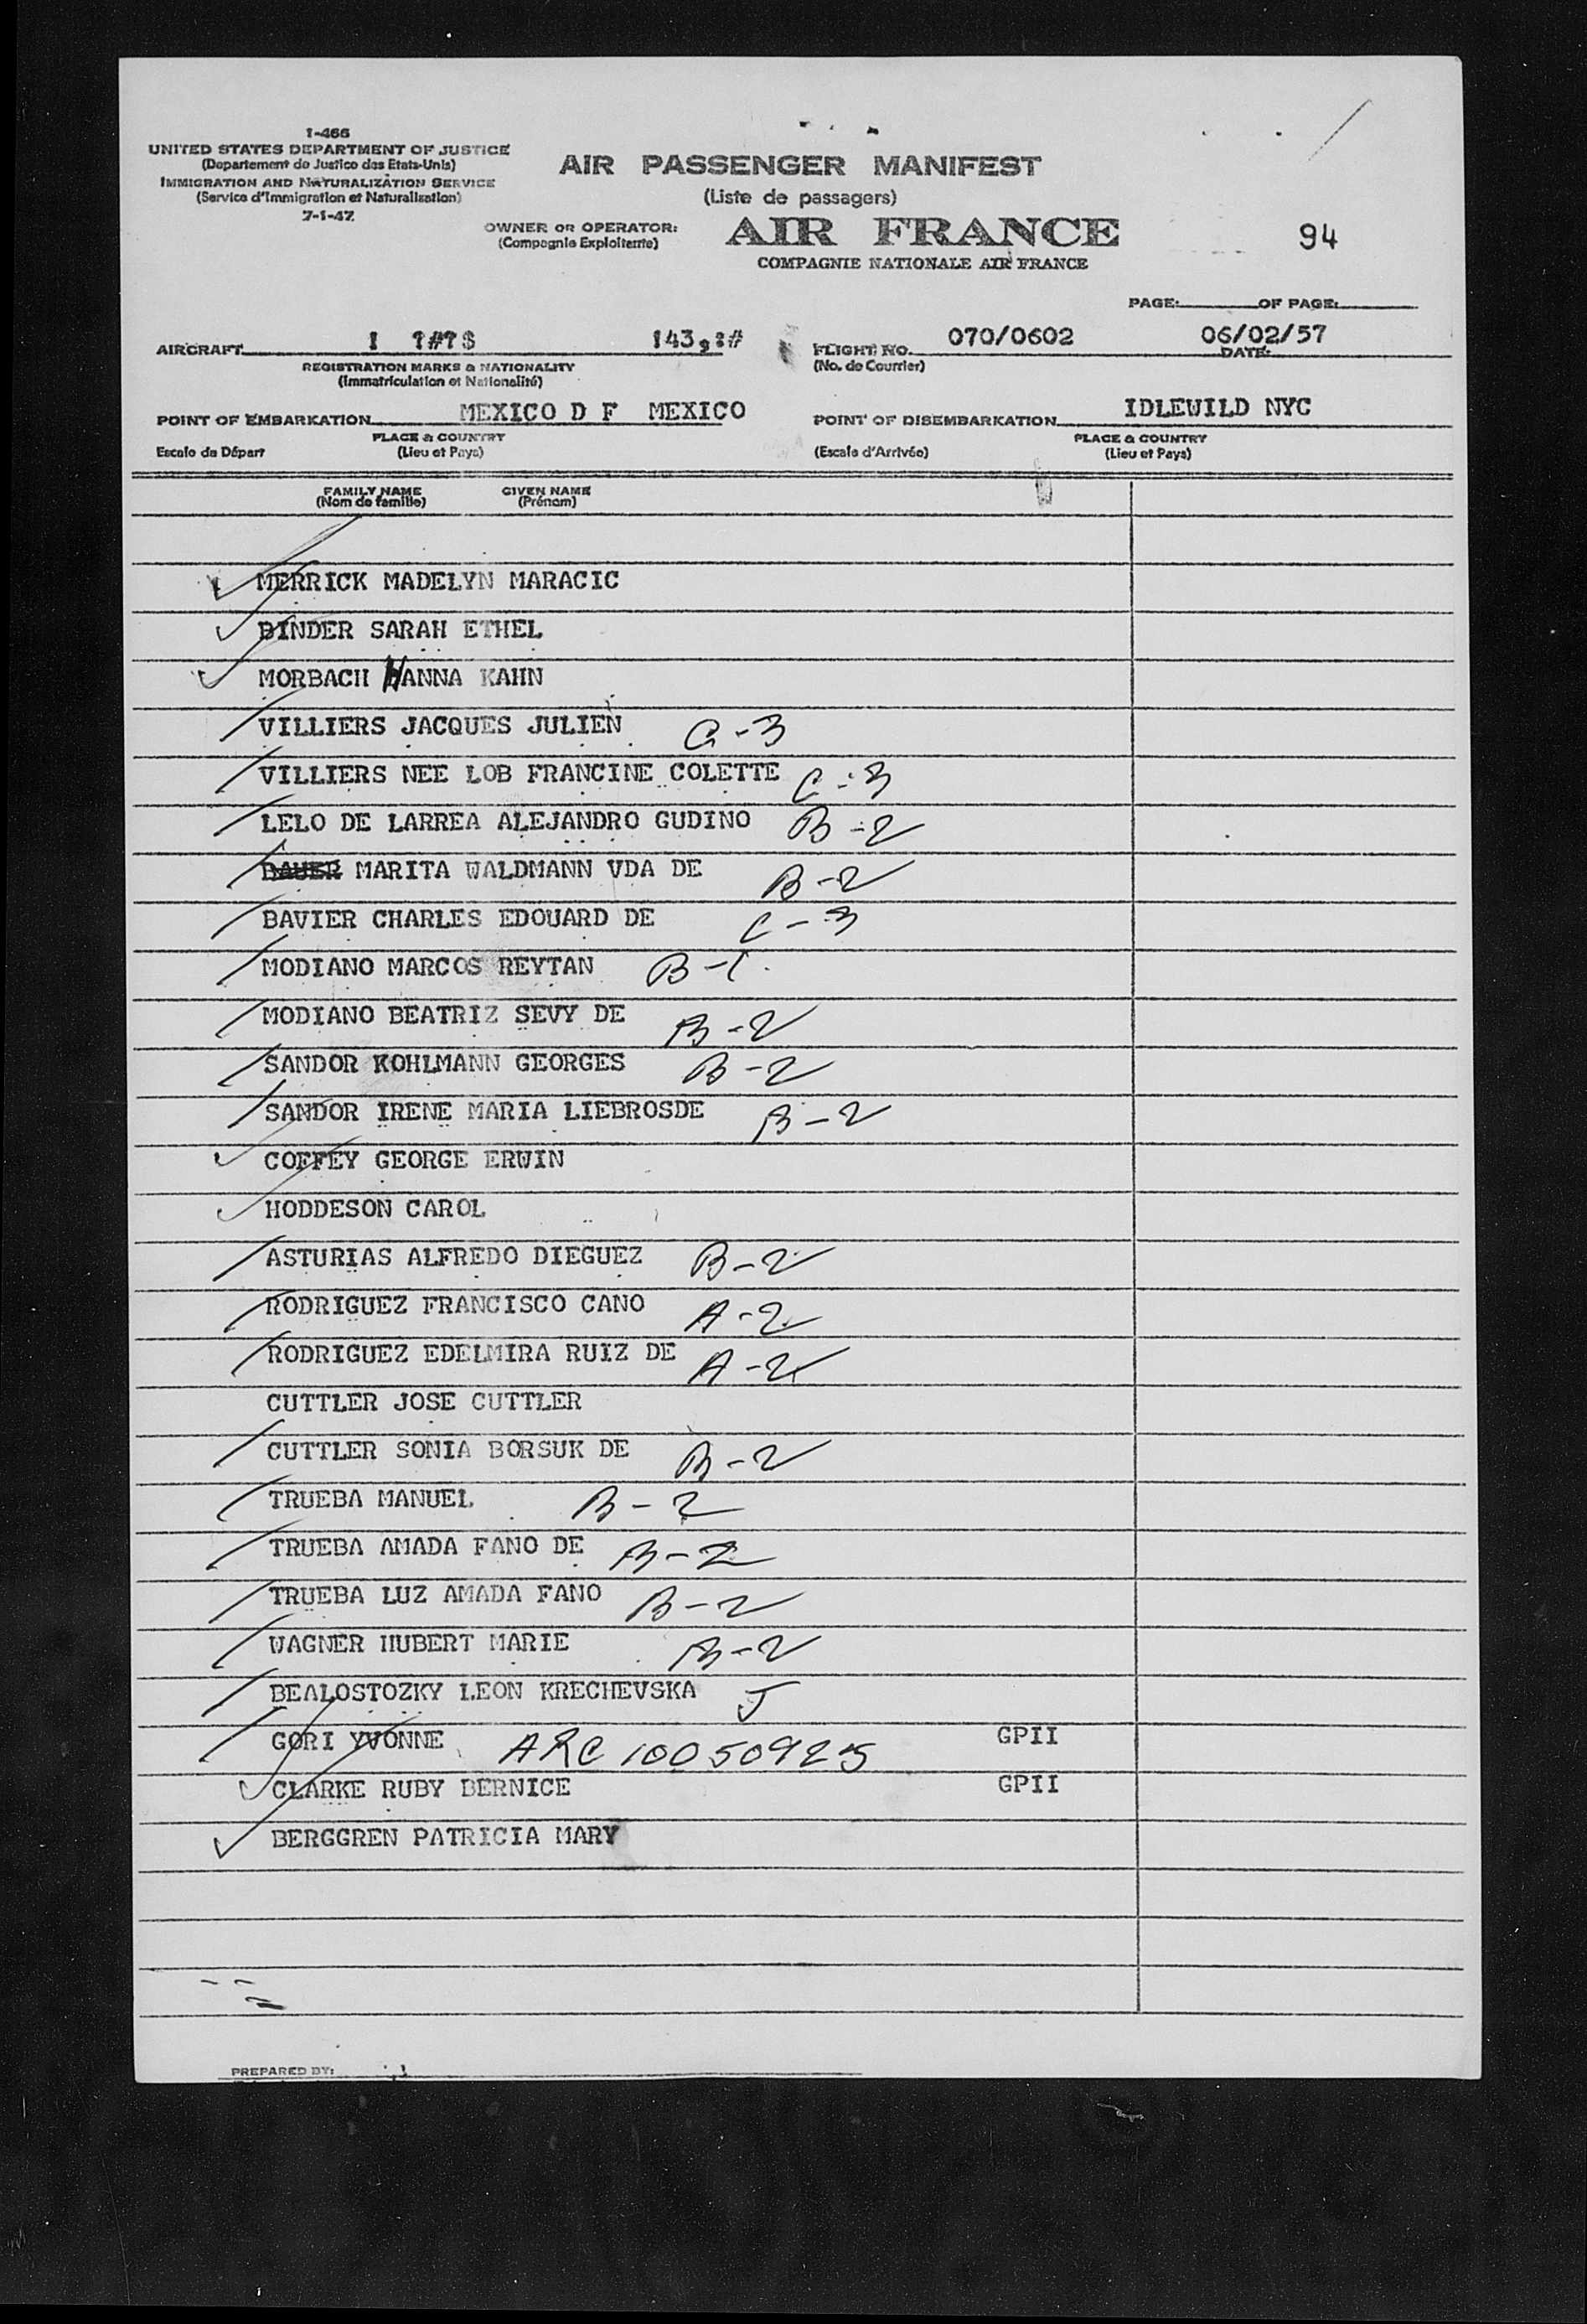 I-466
UNITED STATES DEPARTMENT OF JUSTICE
(Departement de Justice des Etats-Unis)
IMMIGRATION AND NATURALIZATION SERVICE
(Service d'Immigration et Naturalisation)
7-1-47
AIR PASSENGER MANIFEST
(Liste de passagers)
OWNER OR OPERATOR: AIR FRANCE
(Compagnie Exploitante)
COMPAGNIE NATIONALE AIR FRANCE
94
PAGE: OF PAGE:
AIRCRAFT I ?#?$ 143,:# FLIGHT NO. 070/0602 06/02/57
DATE:
REGISTRATION MARKS & NATIONALITY (No. de Courrier)
(Immatriculation et Nationalité)
POINT OF EMBARKATION MEXICO D F MEXICO POINT OF DISEMBARKATION IDLEWILD NYC
PLACE & COUNTRY PLACE & COUNTRY
Escale de Départ (Lieu et Pays) (Escale d'Arrivée) (Lieu et Pays)
FAMILY NAME GIVEN NAME
(Nom de famille) (Prénom)
MERRICK MADELYN MARACIC
BINDER SARAH ETHEL
MORBACH HANNA KAHN
VILLIERS JACQUES JULIEN C-3
VILLIERS NEE LOB FRANCINE COLETTE C-3
LELO DE LARREA ALEJANDRO GUDINO B-2
BAUER MARITA WALDMANN VDA DE B-2
BAVIER CHARLES EDOUARD DE C-3
MODIANO MARCOS REYTAN B-1
MODIANO BEATRIZ SEVY DE B-2
SANDOR KOHLMANN GEORGES B-2
SANDOR IRENE MARIA LIEBROSDE B-2
COFFEY GEORGE ERWIN
HODDESON CAROL
ASTURIAS ALFREDO DIEGUEZ B-2
RODRIGUEZ FRANCISCO CANO A-2
RODRIGUEZ EDELMIRA RUIZ DE A-2
CUTTLER JOSE CUTTLER
CUTTLER SONIA BORSUK DE B-2
TRUEBA MANUEL B-2
TRUEBA AMADA FANO DE B-2
TRUEBA LUZ AMADA FANO B-2
WAGNER HUBERT MARIE B-2
BEALOSTOZKY LEON KRECHEVSKA J
GORI YVONNE ARC 10050925 GPII
CLARKE RUBY BERNICE GPII
BERGGREN PATRICIA MARY
PREPARED BY: